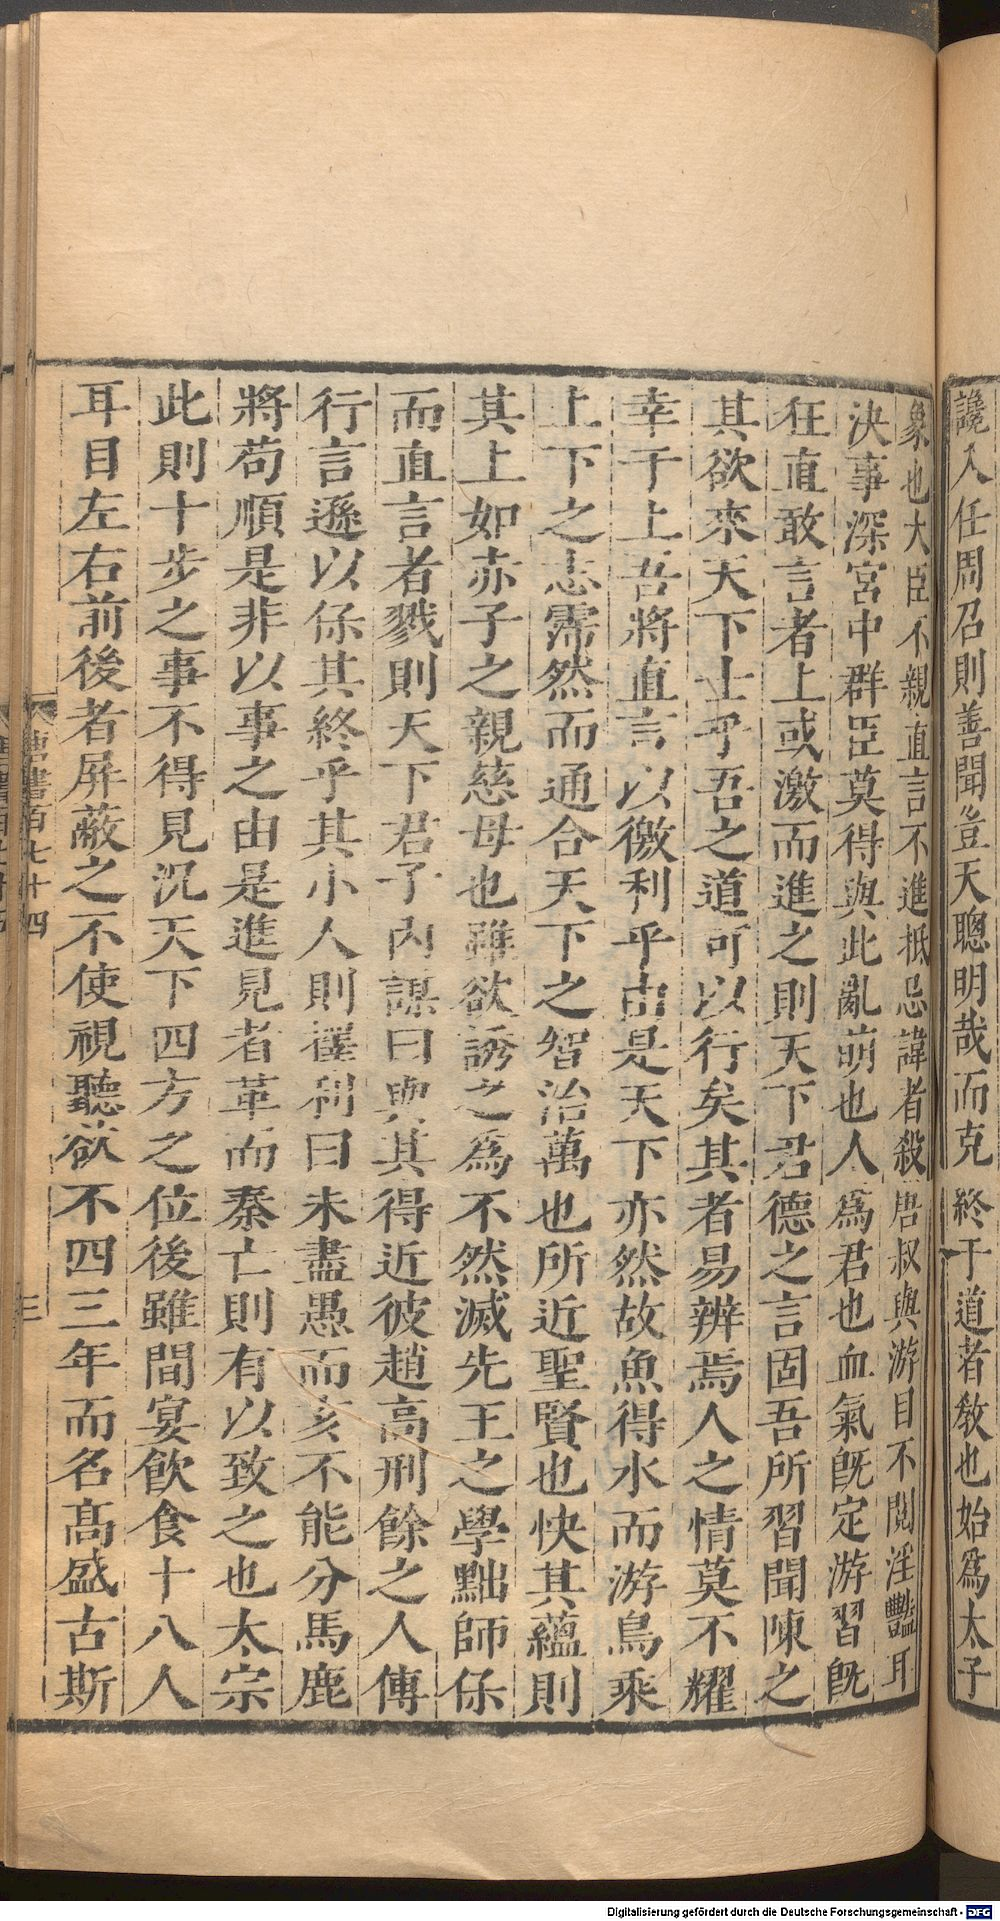 讒入任周召則善聞豈天聰明哉而克終于道者敎也始爲太子
象也大臣不親直言不進抵忌諱者殺唐叔與游目不閱淫豔耳
決事深宮中群臣莫得與此亂萌也人爲君也血氣旣定游習旣
狂直敢言者上或激而進之則天下君德之言固吾所習聞陳之
其欲來天下士乎吾之道可以行矣其者易辨焉人之情莫不耀
幸于上吾將直言以徼利乎由是天下亦然故魚得水而游鳥乘
上下之志霈然而通合天下之智治萬也所近聖賢也快其蘊則
其上如赤子之親慈母也雖欲誘之爲不然滅先王之學黜師保
而直言者戮則天下君子內謀曰與其得近彼趙高刑餘之人傅
行言遜以保其終乎其小人則擇利曰未盡愚而亥不能分馬鹿
將苟順是非以事之由是進見者革而秦亡則有以致之也太宗
此則十步之事不得見況天下四方之位後雖間宴飲食十八人
耳目左右前後者屏蔽之不使視聽欲不四三年而名高盛古斯
唐書百七十四
三
Digitalisierung gefördert durch die Deutsche Forschungsgemeinschaft - DFG